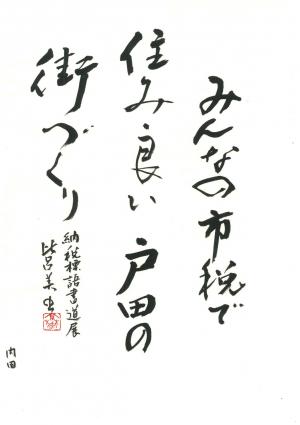 みんなの市税で
住み良い戸田の
街づくり
納税標語書道展
内田